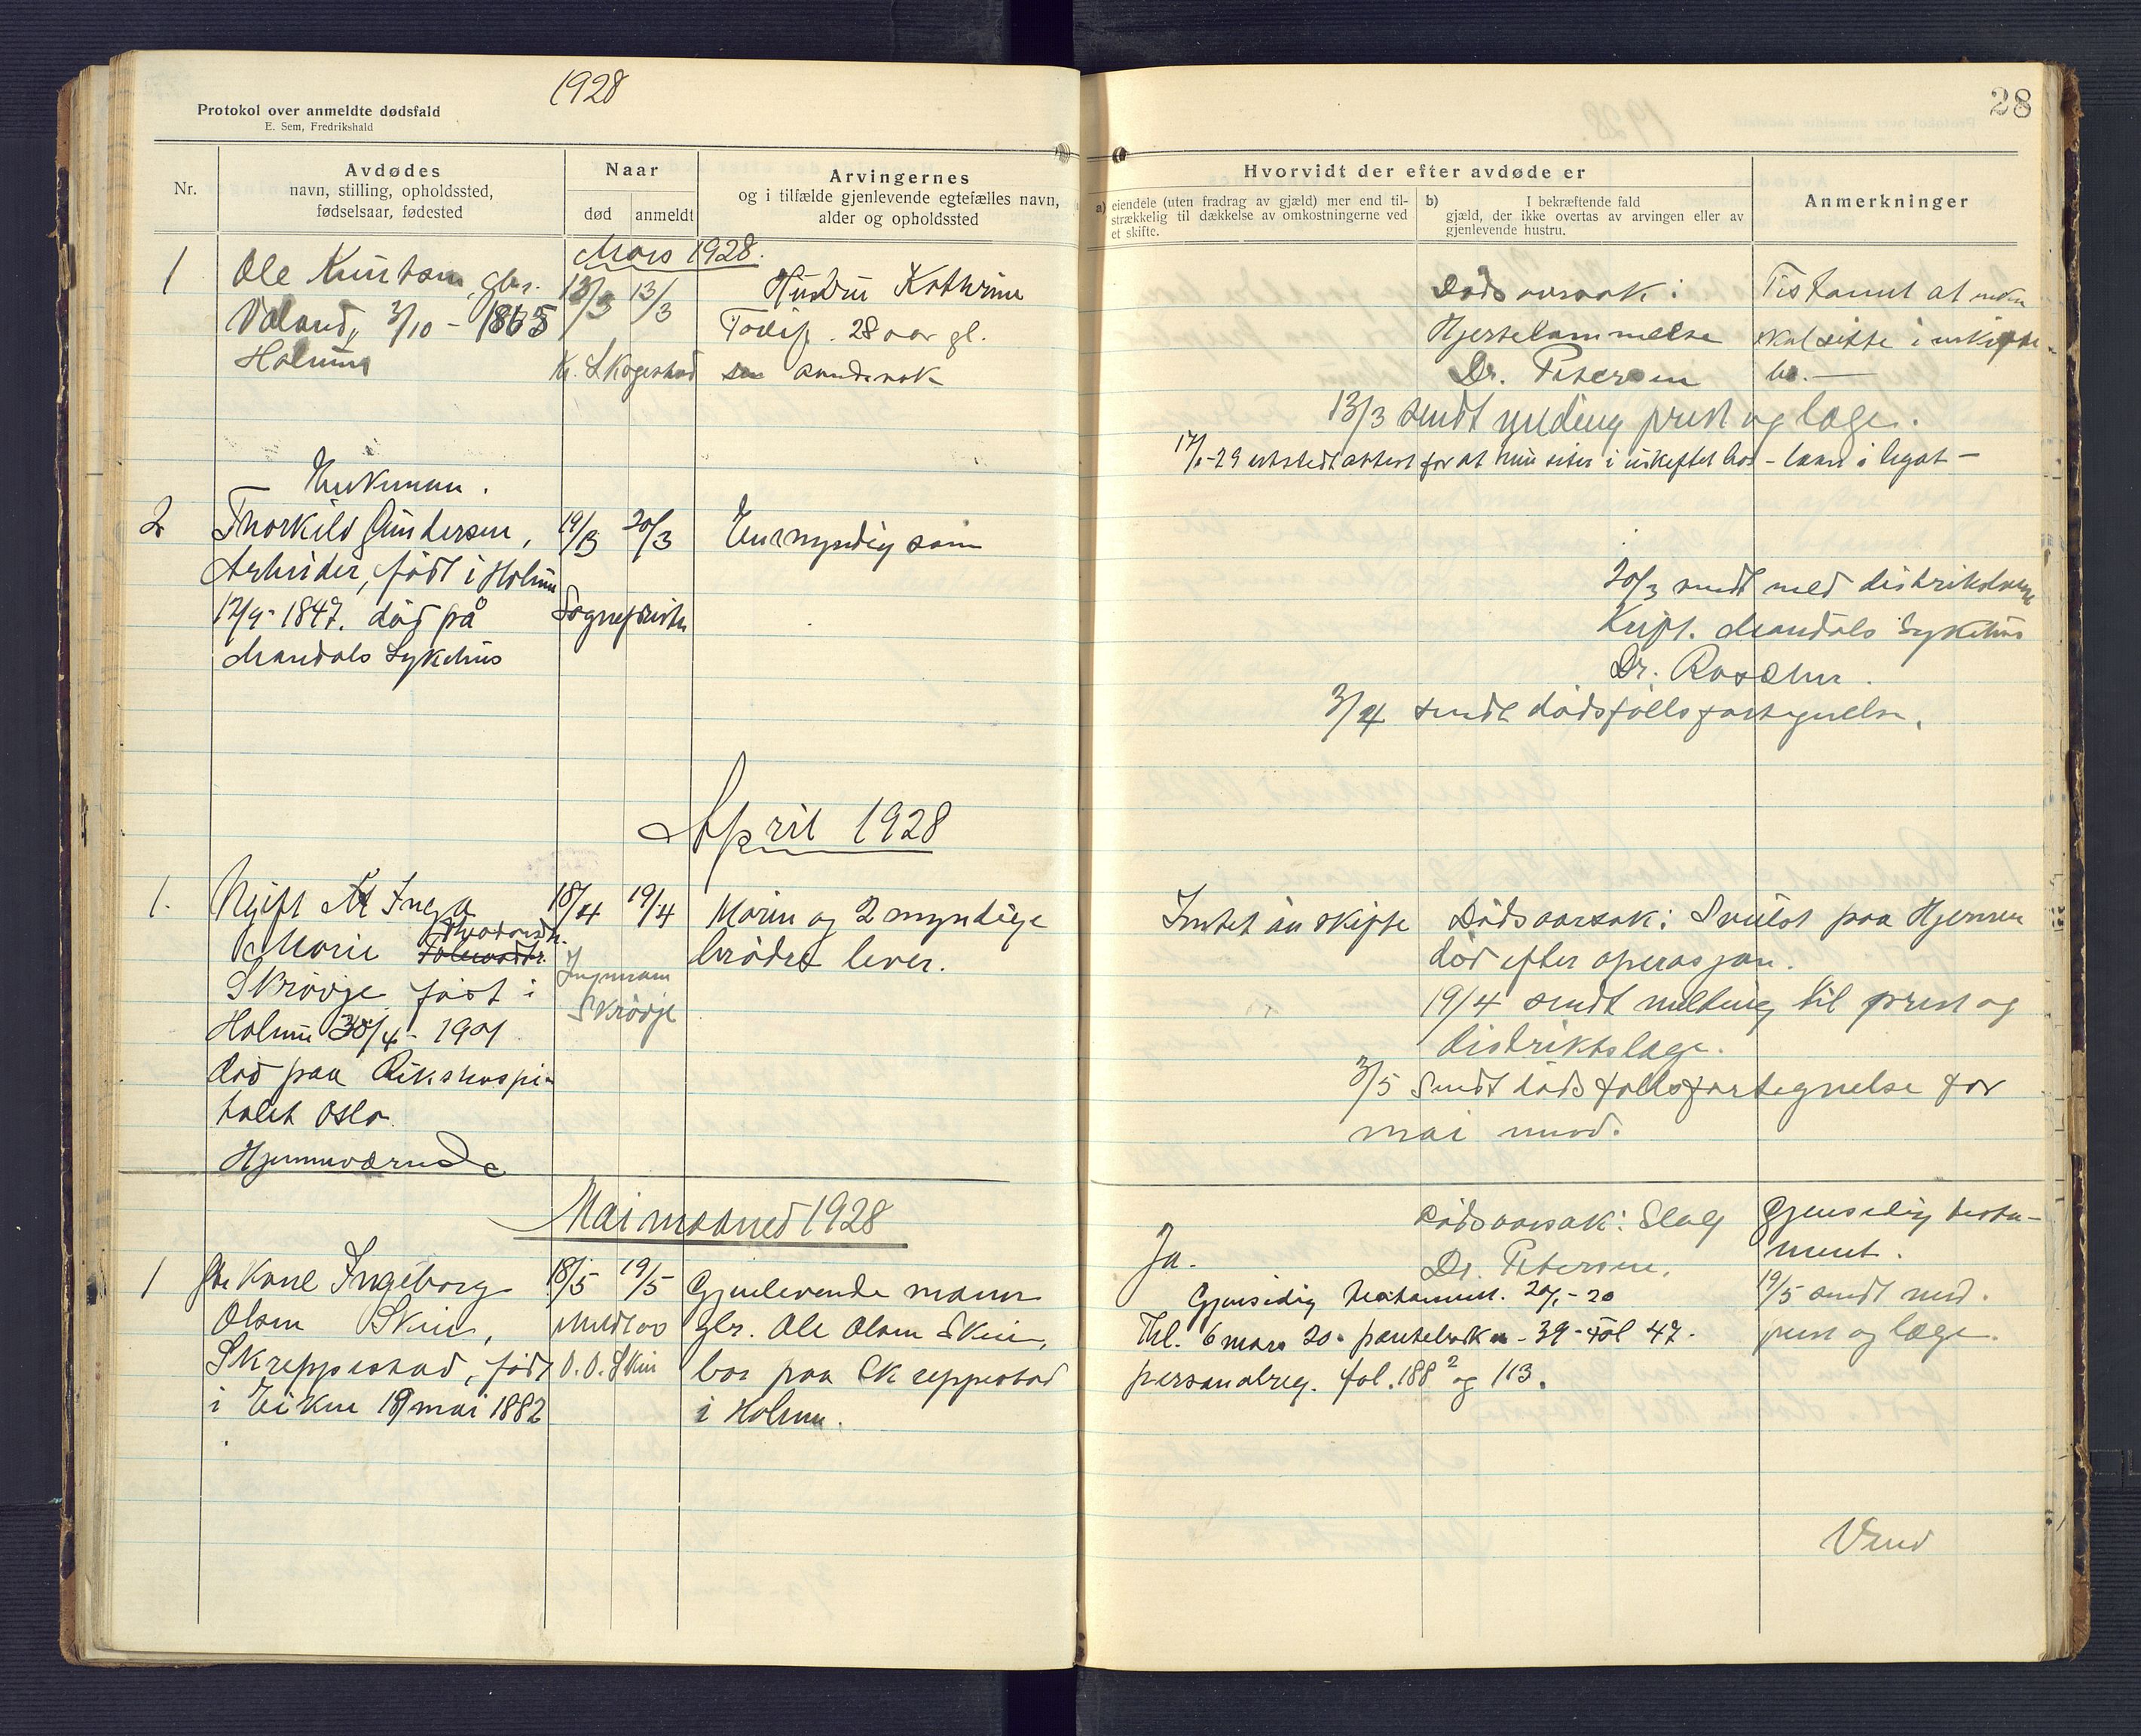 1928
Protokol over anmeldte dødsfald
E. Sem, Fredrikshald
Nr.
Avdødes
navn, stilling, opholdssted,
fødselsaar, fødested
Naar
død anmeldt
Arvingernes
og i tilfælde gjenlevende egtefælles navn,
alder og opholdssted
Mars 1928.
1 Ole Knutsen, gbr. 13/3 13/3 Hustru Kathrine
Valand, 3/10 - 1865 28 aar gl.
Holum
Enkemann.
2 Thorkild Gundersen, 19/3 20/3 myndig søn
Arbeider, født i Holum
12/9- 1847. død på
Mandals Sykehus
April 1928
1. Ugift Inga 18/4 19/4 Morin og 2 myndige
Marie
Skrövje født i Ingvram
Skrövje
brödre lever.
Holum 30/4 - 1901
död paa Rikshospi-
talet Oslo.
Hjemmeværende
Mai maaned 1928
1 Kone Ingeborg 18/5 19/5 Gjenlevende mann
Olsen Skiie, meldt av gbr. Ole Olsen Skiie,
Skreppestad, født O. O. Skiie bor paa Skreppestad
i Eiken 19 mai 1882 i Holum.
28
Hvorvidt der efter avdøde er
a) eiendele (uten fradrag av gjæld) mer end til-
strækkelig til dækkelse av omkostningerne ved
et skifte.
b) I bekræftende fald
gjæld, der ikke overtas av arvingen eller av
gjenlevende hustru.
Anmerkninger
Dødsaarsak: Testamt at enken
Hjertelammelse skal sitte i uskiftet
Dr. Petersen bo.
13/3 sendt melding prest og læge.
17/1-29 utstedt attest for at hun siter i uskiftet bo
20/3 sendt meld distriktslæge
Mandals Sykehus
Dr.
3/4 sendt dödsfallsfortegnelse.
Intet au skifte Dödsaarsak: Svulst paa Hjernen
död efter operasjon.
19/4 sendt melding til prest og
distriktslæge.
3/5 Sendt dödsfallsfortegnelse for
mai mnd.
Ja. Dödsaarsak: Slag
Dr. Petersen.
Gjensidig testa-
ment.
19/5 sendt med.
prest og læge.
Gjensidig testament. 20/1-20
Thl. 6 mars 20. pantebok n - 39 - Fol 47.
personalreg. fol. 188² og 113.
Vend